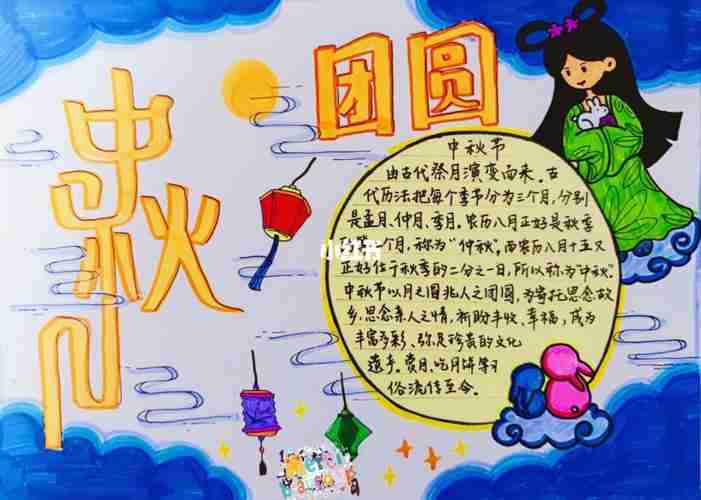 中秋
团圆
中秋节
由古代祭月演变而来。古
代历法把每个季节分为三个月，分别
是孟月、仲月、季月。农历八月正好是秋季
个月，称为“仲秋”。而农历八月十五又
正好位于秋季的二分之一日，所以称为“中秋”。
中秋节以月之圆兆人之团圆，为寄托思念故
乡，思念亲人之情，祈盼丰收、幸福，成为
丰富多彩、弥足珍贵的文化
遗产。赏月、吃月饼等习
俗流传至今。
小红书